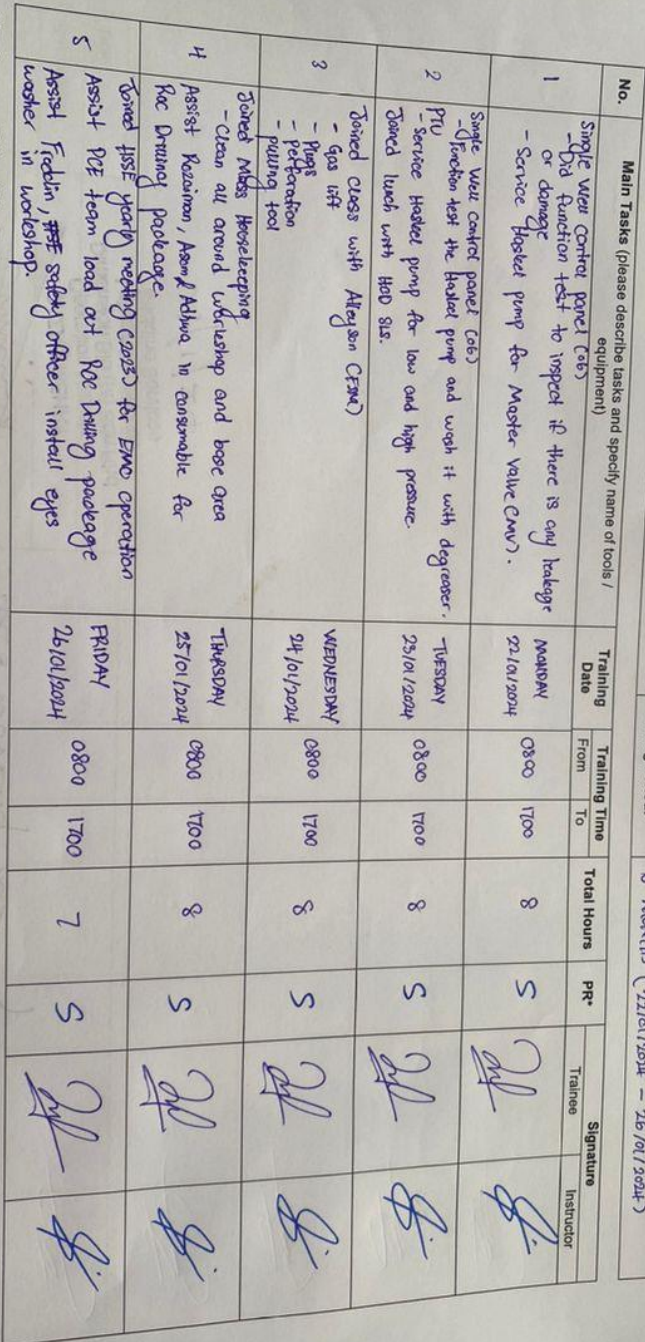 (22/01/2024 - 26/01/2024)
No.
Main Tasks (please describe tasks and specify name of tools / equipment)
Training Date
Training Time
From
To
Total Hours
PR*
Signature
Trainee
Instructor
1
Single Well control panel (06)
- Did function test to inspect if there is any leakage
or damage
- Service Haskel pump for Master Valve (MV).
MONDAY
22/01/2024
0800
1700
8
5
2
Single Well control panel (06)
- Function test the Haskel pump and wash it with degreaser.
PTU
- Service Haskel pump for low and high pressure.
Joined lunch with HOD SLS.
TUESDAY
23/01/2024
0800
1700
8
5
3
Joined class with Alleyson (FSM)
- Gas lift
- Plugs
- perforation
- pulling tool
WEDNESDAY
24/01/2024
0800
1700
8
5
4
Joined Mass Housekeeping
- Clean all around workshop and base area
Assist Rozaiman, Adhwa in consumable for
Roc Drilling package.
THURSDAY
25/01/2024
0800
1700
8
5
5
Joined HSSE yearly meeting (2023) for EMO operation
Assist PCE team load out Roc Drilling package
Assist safety officer install eyes
washer in workshop.
FRIDAY
26/01/2024
0800
1700
7
5